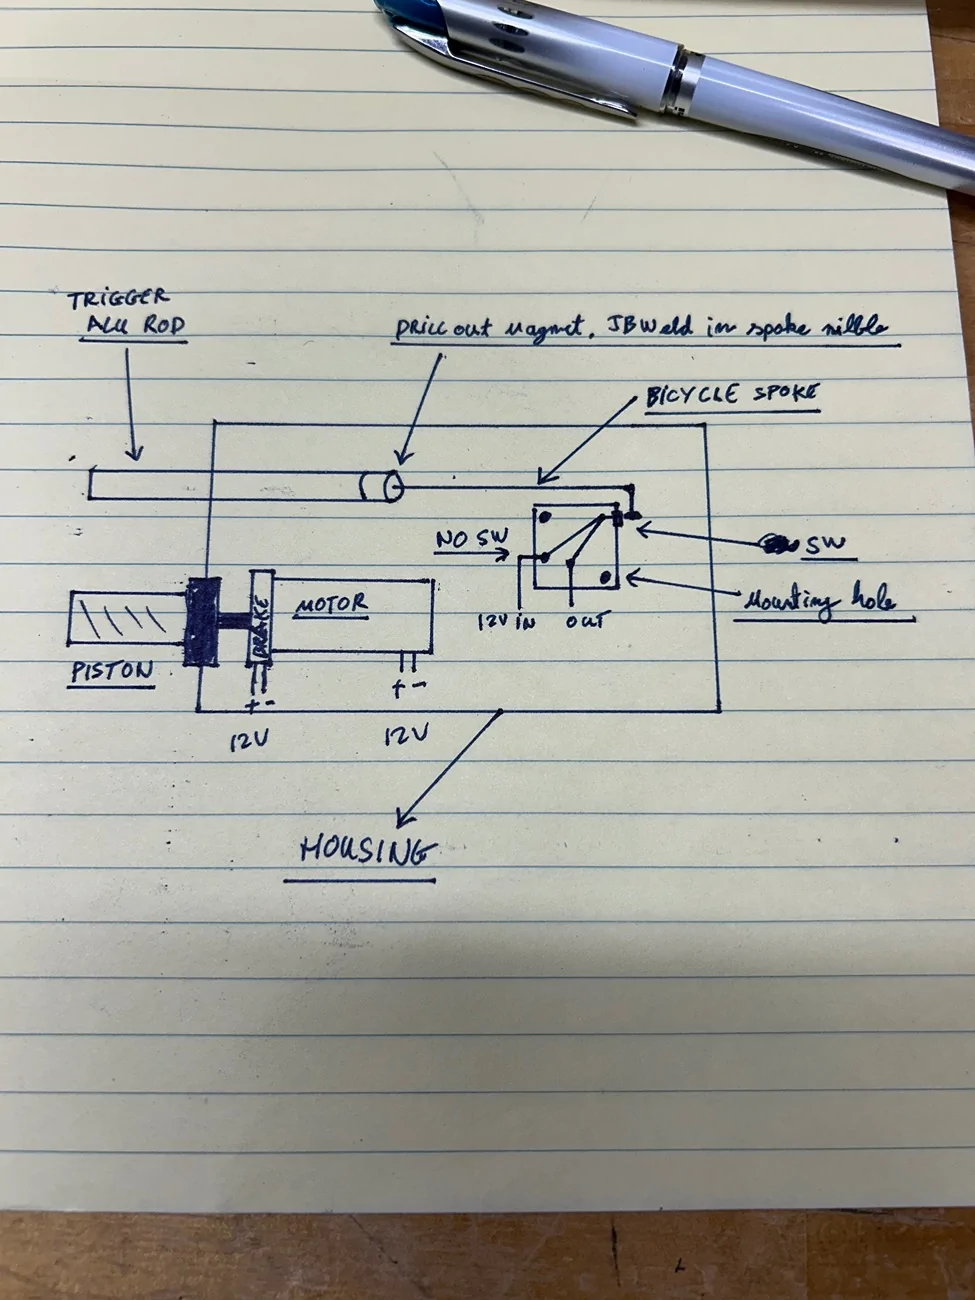 TRIGGER
ALU ROD
DRILL out magnet, JBWeld in spoke nibble
BICYCLE SPOKE
NO SW
SW
12V IN
OUT
Mounting hole
BRAKE
MOTOR
PISTON
+ -
+ -
12V
12V
HOUSING